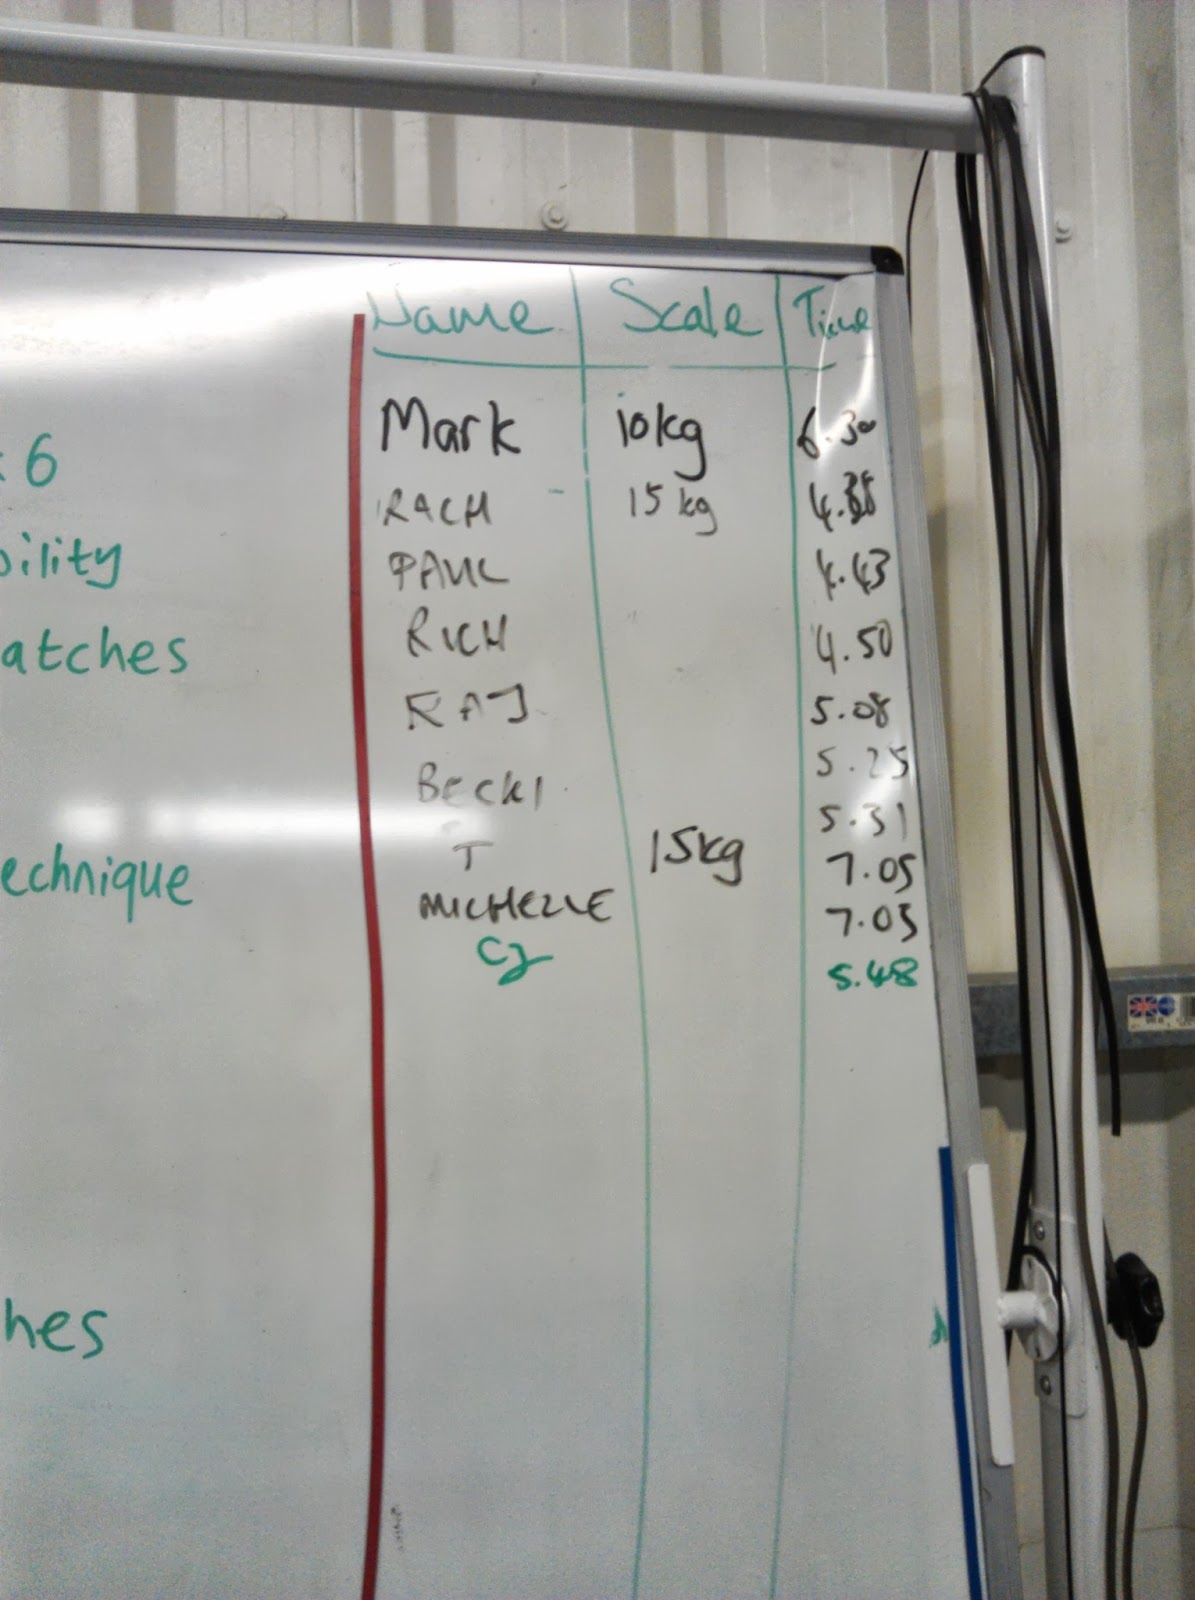 Name Scale Time
Mark 10kg 6.30
6
RACH 15 kg
PAUL 4.43
bility
RICH 4.50
atches
RAJ 5.08
BECKI 5.25
5.31
T 15kg 7.05
echnique
MICHELLE 7.05
CJ 5.48
hes